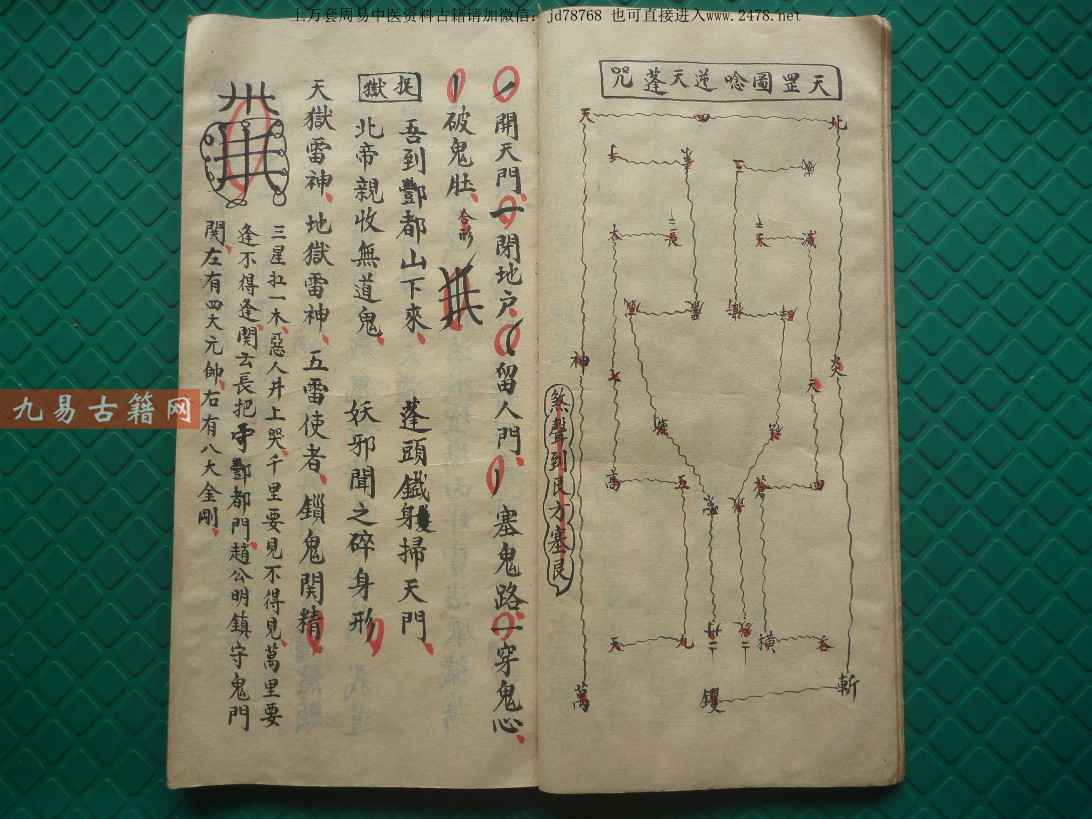 上万套周易中医资料古籍请加微信：jd78768 也可直接进入www.2478.net
九易古籍网
天罡圖唸逆天蓬咒
北
四
天
三
七
天
長
太
炎
神
天
七
四
蒼
五
萬
吞
橫
九
天
斬
鑊
萬
煞聲到艮方塞艮
開天門、一閉地戶、留人門、塞鬼路、一穿鬼心、
破鬼肚、合形
捉獄
吾到酆都山下來、蓬頭鐵身掃天門、
北帝親收無道鬼、妖邪聞之碎身形、
天獄雷神、地獄雷神、五雷使者、鎖鬼関精、
三星扛一木、惡人井上哭、千里要見不得見、萬里要
逢不得逢、関云長把守酆都門、趙公明鎮守鬼門
関、左有四大元帥、右有八大金剛、